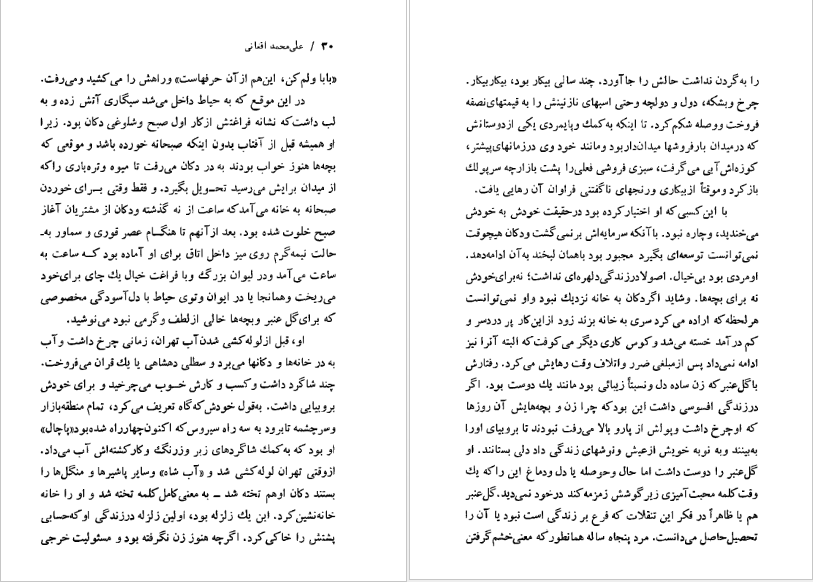 ۳۰ / علی‌محمد افغانی
«بابا ولم کن، این‌هم از آن حرفهاست» وراهش را می‌کشید ومی‌رفت.
در این موقع که به حیاط داخل می‌شد سیگاری آتش زده و به
لب داشت که نشانه فراغتش ازکار اول صبح وشلوغی دکان بود. زیرا
او همیشه قبل از آفتاب بدون اینکه صبحانه خورده باشد و موقعی که
بچه‌ها هنوز خواب بودند به در دکان می‌رفت تا میوه وتره‌باری راکه
از میدان برایش می‌رسید تحویل بگیرد. و فقط وقتی برای خوردن
صبحانه به خانه می‌آمدکه ساعت از نه گذشته ودکان از مشتریان آغاز
صبح خلوت شده بود. بعد ازآنهم تا هنگام عصر قوری و سماور به‌-
حالت نیمه‌گرم روی میز داخل اتاق برای او آماده بود که ساعت به
ساعت می‌آمد ودر لیوان بزرگ وبا فراغت خیال یك چای برای‌خود
می‌ریخت وهمانجا یا در ایوان وتوی حیاط با دل‌آسودگی مخصوصی
که برای‌گل عنبر وبچه‌ها خالی ازلطف وگرمی نبود می‌نوشید.
او، قبل ازلوله‌کشی شدن‌آب تهران، زمانی چرخ داشت وآب
به در خانه‌ها و دکانها می‌برد و سطلی دهشاهی یا یك قران می‌فروخت.
چند شاگرد داشت وکسب و کارش خوب می‌چرخید و برای خودش
بروبیایی داشت. به‌قول خودش‌که‌گاه تعریف می‌کرد، تمام منطقه‌بازار
وسرچشمه تابرود به سه راه سیروس‌که اکنون‌چهارراه شده‌بود«پاچال»
او بود که به‌کمك شاگردهای زبر وزرنگ وکارکشته‌اش آب می‌داد.
ازوقتی تهران لوله‌کشی شد و «آب شاه» وسایر پاشیرها و منگل‌ها را
بستند دکان اوهم تخته شد ــ به معنی‌کامل‌کلمه تخته شد و او را خانه
خانه‌نشین‌کرد. این یك زلزله بود، اولین زلزله درزندگی اوکه‌حسابی
پشتش را خاکی‌کرد. اگرچه هنوز زن نگرفته بود و مسئولیت خرجی
را به‌گردن نداشت حالش را جاآورد. چند سالی بیکار بود، بیکاربیکار.
چرخ وبشکه، دول و دولچه وحتی اسبهای نازنینش را به قیمتهای‌نصفه
فروخت ووصله شکم‌کرد. تا اینکه به‌کمك وپایمردی یکی ازدوستانش
که درمیدان بارفروشها میدان‌داربود ومانند خود وی درزمانهای‌پیشتر،
کوزه‌اش‌آبی می‌گرفت، سبزی فروشی فعلی‌را پشت بازارچه سرپولك
بازکرد وموقتاً ازبیکاری ورنجهای ناگفتنی فراوان آن رهایی یافت.
با این‌کسبی‌که او اختیارکرده بود درحقیقت خودش به خودش
می‌خندید، وچاره نبود. باآنکه سرمایه‌اش برنمی‌گشت ودکان هیچوقت
نمی‌توانست توسعه‌ای بگیرد مجبور بود باهمان لبخند به‌آن ادامه‌دهد.
اومردی بود بی‌خیال. اصولاً درزندگی دلهره‌ای نداشت؛ نه‌برای‌خودش
نه برای بچه‌ها. وشاید اگردکان به خانه نزدیك نبود واو نمی‌توانست
هرلحظه‌که اراده می‌کرد سری به خانه بزند زود ازاین‌کار پر دردسر و
کم درآمد خسته می‌شد وکوس کاری دیگر می‌کوفت‌که البته آنرا نیز
ادامه نمی‌داد پس ازمبلغی ضرر واتلاف وقت رهایش می‌کرد. رفتارش
باگل‌عنبرکه زن ساده دل ونسبتاً زیبائی بود مانند یك دوست بود. اگر
درزندگی افسوسی داشت این بودکه چرا زن و بچه‌هایش آن روزها
که اوچرخ داشت وپولش از پارو بالا می‌رفت نبودند تا بروبیای اورا
به‌بینند وبه نوبه خویش ازعیش ونوشهای زندگی داد دلی بستانند. او
گل‌عنبر را دوست داشت اما حال وحوصله یا دل ودماغ این راکه یك
وقت‌کلمه محبت‌آمیزی زیرگوشش زمزمه‌کند درخود نمی‌دید.گل‌عنبر
هم یا ظاهراً در فکر این تنقلات که فرع بر زندگی است نبود یا آن را
تحصیل‌حاصل می‌دانست. مرد پنجاه ساله همانطورکه معنی‌خشم‌گرفتن